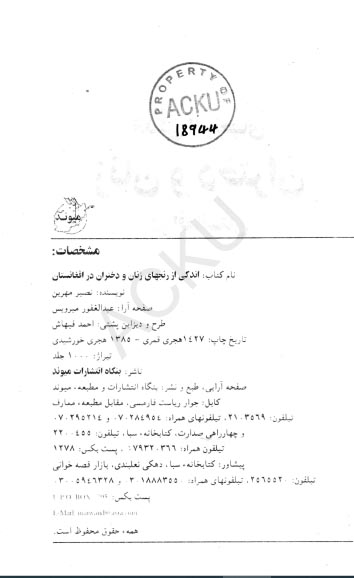 PROPERTY OF
ACKU
18944
میوند
مشخصات:
نام کتاب: اندکی از رنجهای زنان و دختران در افغانستان
نویسنده: نصیر مهرین
صفحه آرا: عبدالغفور میرویس
طرح و دیزاین پشتی: احمد فیهاش
تاریخ چاپ: ۱۴۲۷هجری قمری - ۱۳۸۵ هجری خورشیدی
تیراژ: ۱۰۰۰ جلد
ناشر: بنگاه انتشارات میوند
صفحه آرایی، طبع و نشر: بنگاه انتشارات و مطبعه، میوند
کابل: جوار ریاست فارمسی، مقابل مطبعه، معارف
تیلفون: ۲۱۰۳۵۶۹، تیلفونهای همراه: ۰۷۰۲۸۴۹۵۴ و ۰۷۰۲۹۵۲۱۴
و چهارراهی صدارت، کتابخانه، سبا، تیلفون: ۲۲۰۰۴۵۵
تیلفون همراه: ۰۷۹۳۲۰۳۶۶، پست بکس: ۱۲۷۸
پیشاور: کتابخانه، سبا، دهکی نعلبندی، بازار قصه خوانی
تیلفون: ۲۵۶۵۵۲۰، تیلفونهای همراه: ۰۳۰۰۱۸۸۸۳۵۵ و ۰۳۰۰۵۹۴۶۳۲۸
پست بکس: P.O. BOX
E-Mail
همه، حقوق محفوظ است.
ACKU